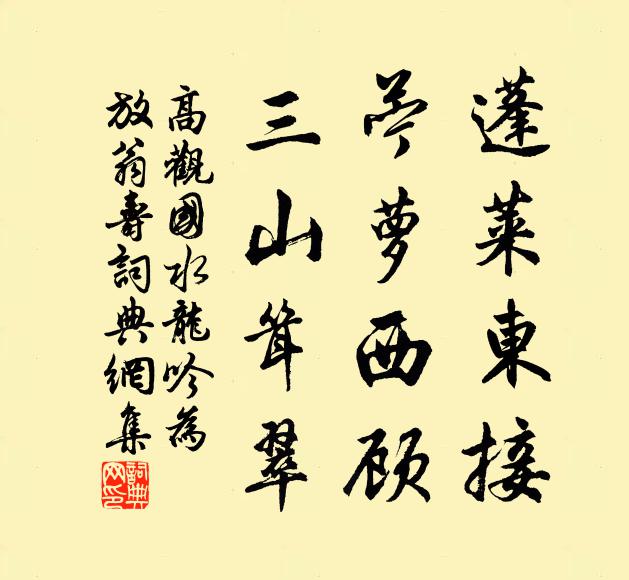 蓬萊東接
芩萝西顾
三山耸翠
高觀國水龍吟為
放翁壽詞典網集
詞典网印